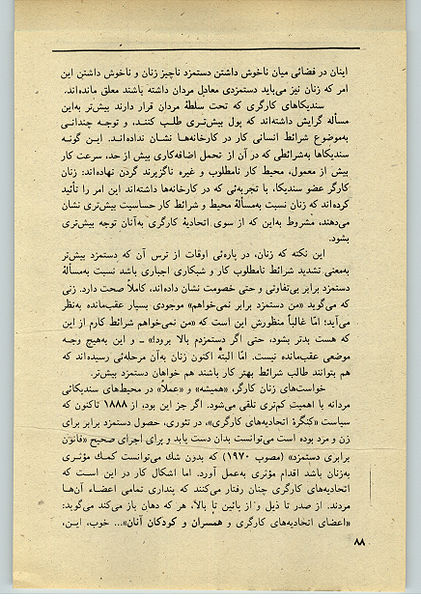 اینان در فضائی میان ناخوش داشتن دستمزد ناچیز زنان و ناخوش داشتن این
امر که زنان نیز می‌باید دستمزدی معادل مردان داشته باشند معلق مانده‌اند.
سندیکاهای کارگری که تحت سلطهٔ مردان قرار دارند بیش‌تر به‌این
مسأله گرایش داشته‌اند که پول بیش‌تری طلب کنند، و توجه چندانی
به‌موضوع شرائط انسانی کار در کارخانه‌ها نشان نداده‌اند. این گونه
سندیکاها به‌شرائطی که در آن از تحمل اضافه‌کاری بیش از حد، سرعت کار
بیش از معمول، محیط کار نامطلوب و غیره ناگزیرند گردن نهاده‌اند: زنان
کارگر عضو سندیکا، با تجربه‌ئی که در کارخانه‌ها داشته‌اند این امر را تأئید
کرده‌اند که زنان نسبت به‌مسألهٔ محیط و شرائط کار حساسیت بیش‌تری نشان
می‌دهند، مشروط به‌این که از سوی اتحادیهٔ کارگری به‌آنان توجه بیش‌تری
بشود.
این نکته که زنان، در پاره‌ئی اوقات از ترس آن که دستمزد بیش‌تر
به‌معنی تشدید شرائط نامطلوب کار و شبکاری اجباری باشد نسبت به‌مسألهٔ
دستمزد برابر بی‌تفاوتی و حتی خصومت نشان داده‌اند، کاملاً صحت دارد. زنی
که می‌گوید «من دستمزد برابر نمی‌خواهم» موجودی بسیار عقب‌مانده به‌نظر
می‌آید؛ امّا غالباً منظورش این است که «من نمی‌خواهم شرائط کارم از این
که هست بدتر بشود، حتی اگر دستمزدم بالا برود!» ـ و این به‌هیچ وجه
موضعی عقب‌مانده نیست. امّا البته اکنون زنان به‌آن مرحله‌ئی رسیده‌اند که
هم بتوانند طالب شرائط بهتر کار باشند هم خواهان دستمزد بیش‌تر.
خواست‌های زنان کارگر، «همیشه» و «عملاً» در محیط‌های سندیکائی
مردانه با اهمیت کم‌تری تلقی می‌شود. اگر جز این بود، از ۱۸۸۸ تاکنون که
سیاست «کنگرهٔ اتحادیه‌های کارگری»، در تئوری، حصول دستمزد برابر برای
زن و مرد بوده است می‌توانست بدان دست یابد و برای اجرای صحیح «قانون
برابری دستمزد» (مصوب ۱۹۷۰) که بدون شك می‌توانست کمك مؤثری
به‌زنان باشد اقدام مؤثری به‌عمل آورد. اما اشکال کار در این است که
اتحادیه‌های کارگری چنان رفتار می‌کنند که پنداری تمامی اعضاء آن‌ها
مردند. از صدر تا ذیل و از پائین تا بالا، هر که دهان باز می‌کند می‌گوید:
«اعضای اتحادیه‌های کارگری و همسران و کودکان آنان»... خوب، این،
۸۸